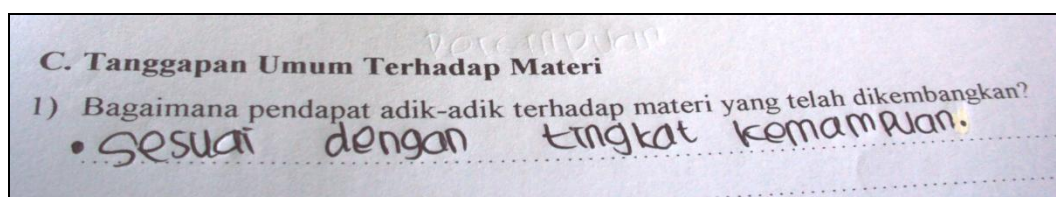 C. Tanggapan Umum Terhadap Materi
1) Bagaimana pendapat adik-adik terhadap materi yang telah dikembangkan?
• Sesuai dengan tingkat kemampuan.